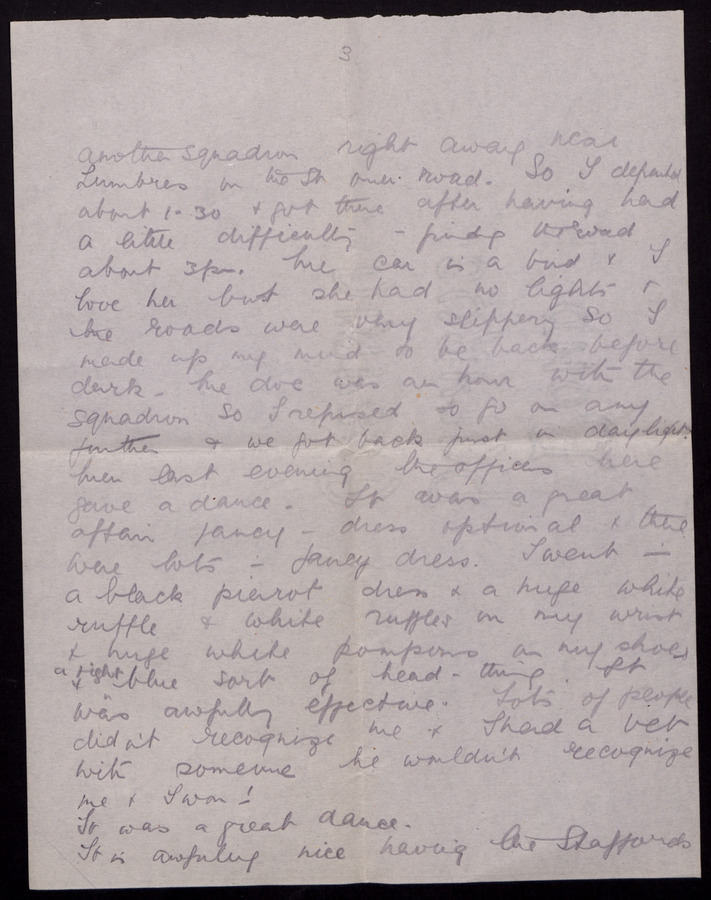 3
another Squadron right away near
Lumbres on the St Omer road. So I departed
about 1-30 & got there after having had
a little difficulty - finding the road
about 3pm. The car is a bird & I
love her but she had no lights &
the roads were very slippery so I
made up my mind to be back before
dark. The doc was an hour with the
Squadron so I refused to go on any
further & we got back just in daylight.
Then last evening the officers here
gave a dance. It was a great
affair fancy-dress optional & there
were lots in fancy dress. I went in
a black pierrot dress & a huge white
ruffle & white ruffles on my wrist
& huge white pompoms on my shoes
& a tight blue sort of head-thing. It
was awfully effective. Lots of people
didn't recognize me & I had a bet
with someone he wouldn't recognize
me & I won!
It was a great dance.
It is awfully nice having the Staffords